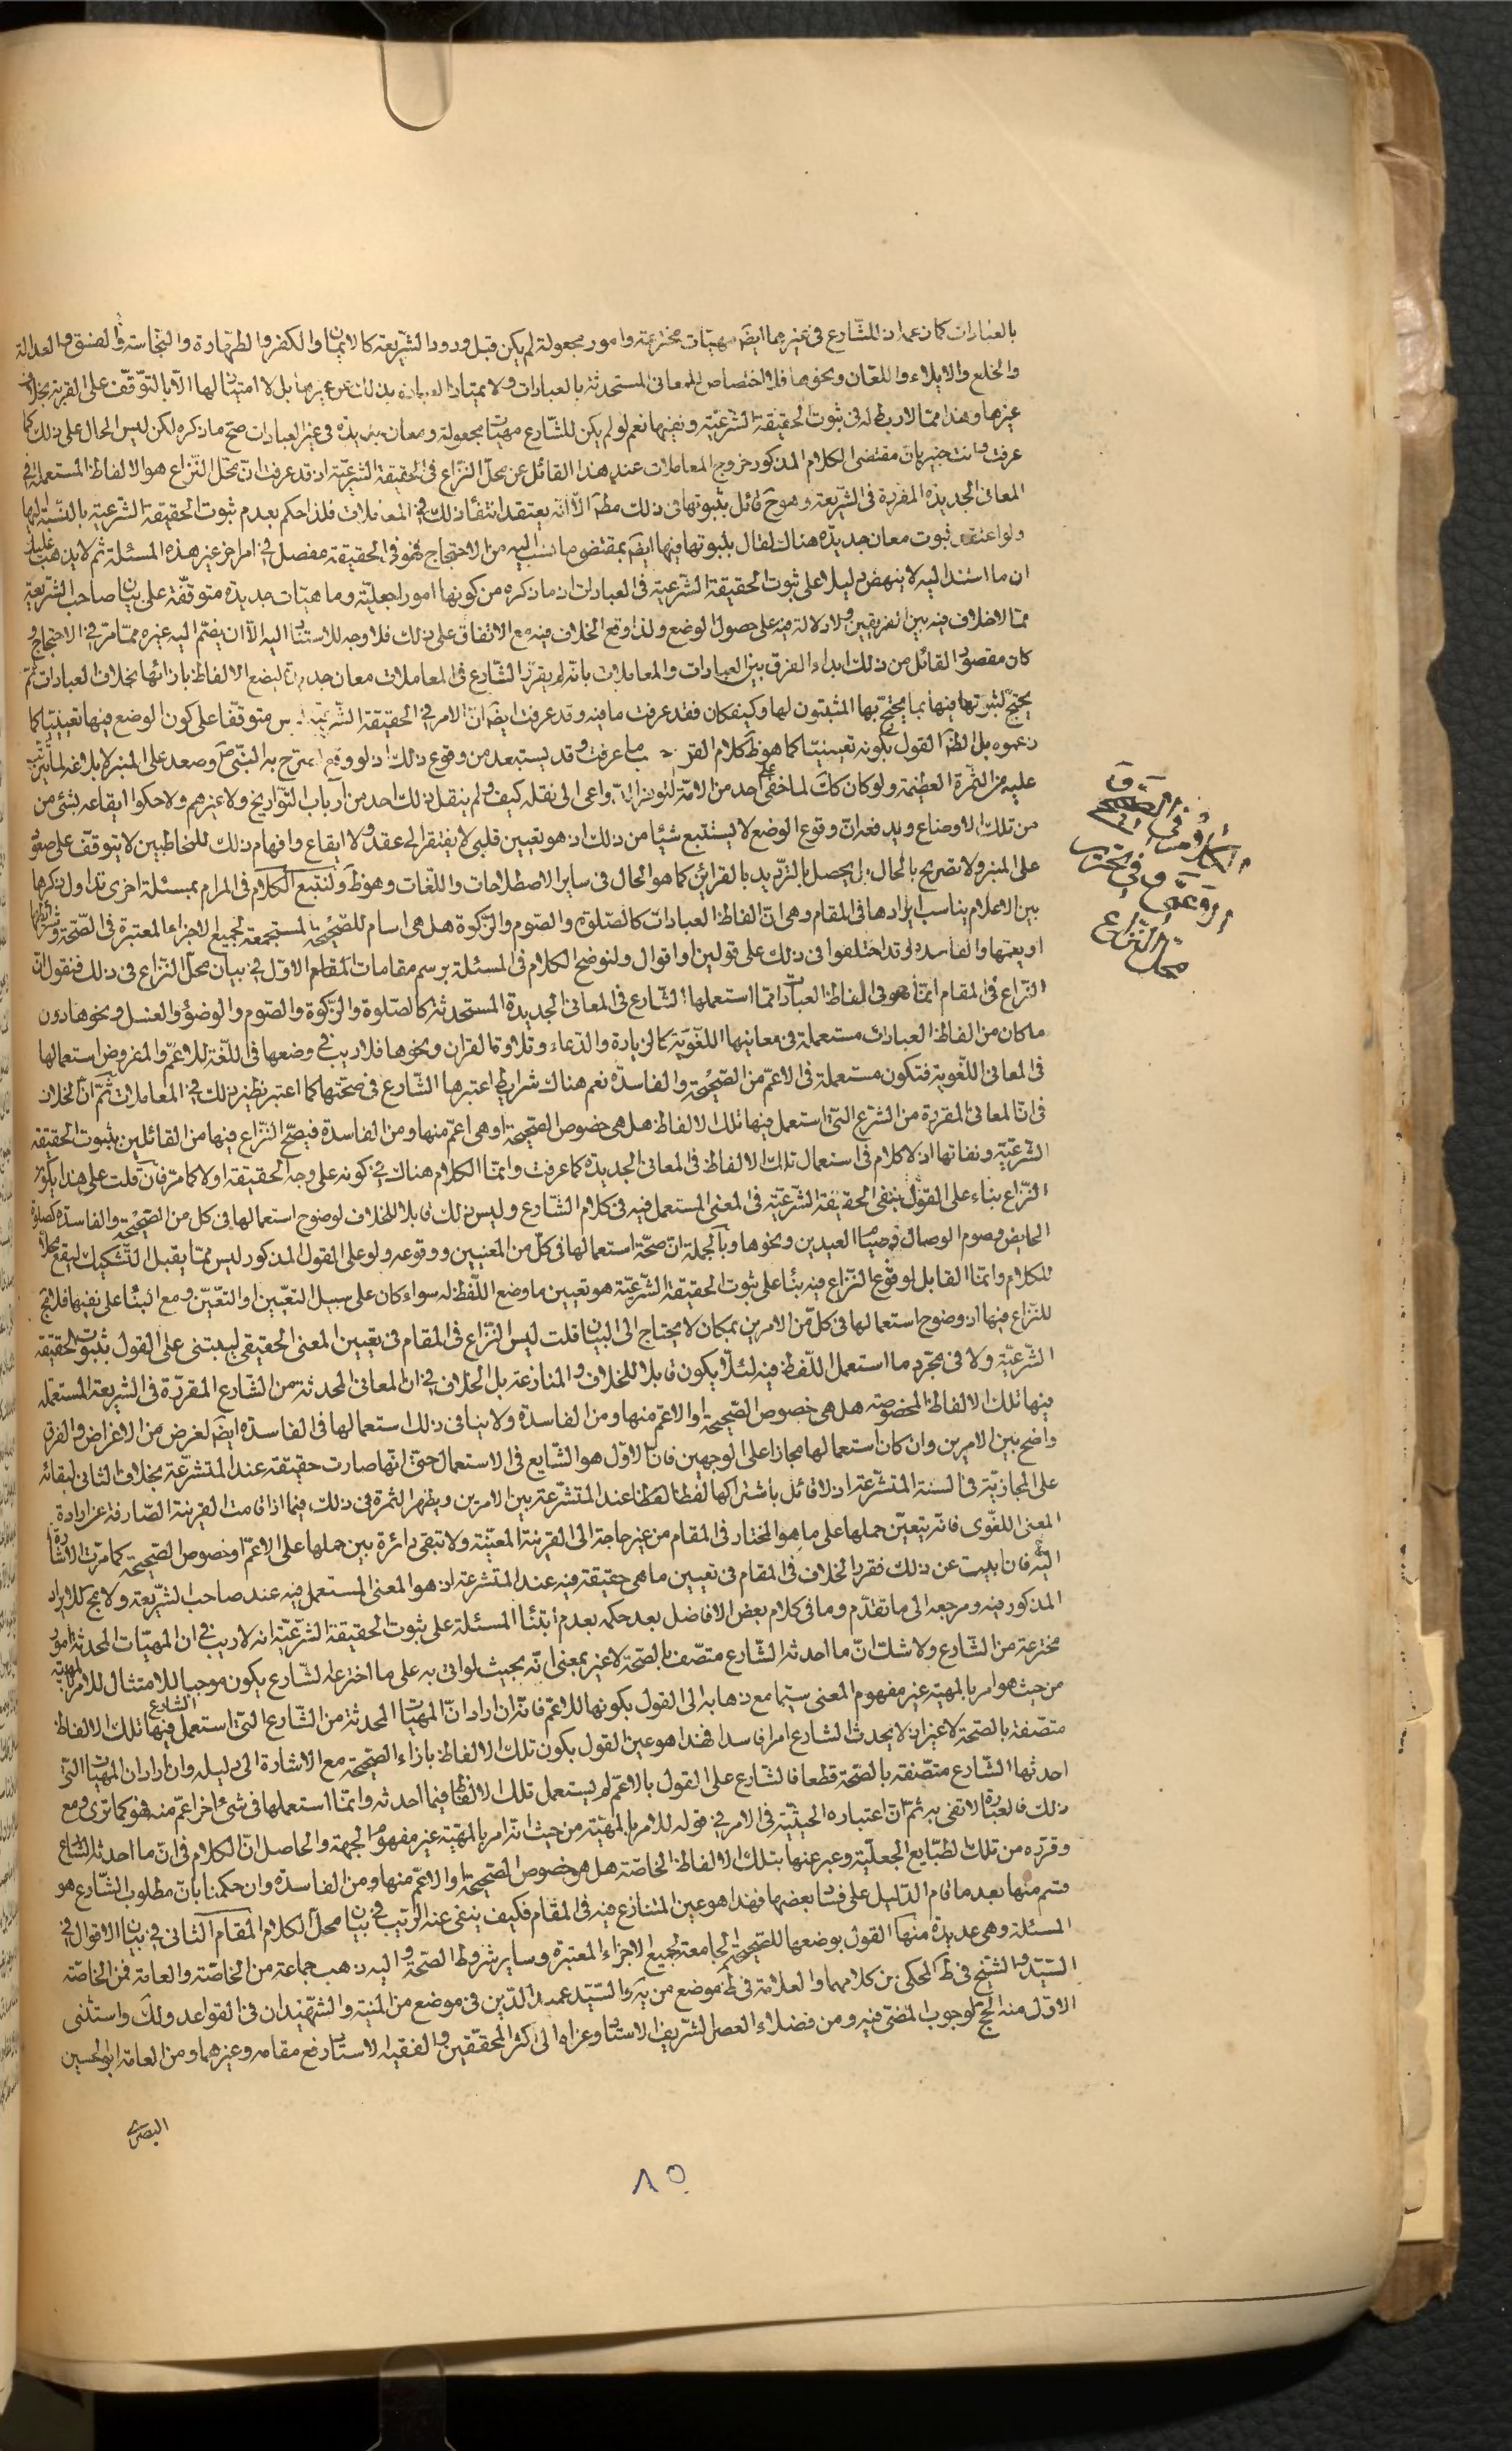 بالعبادات كما زعمه اذ للشّارع فى غيرهما ايضَم مهيّات مخترعة وامور مجعولة لم يكن قبل ورود الشّريعة كالايمان والكفر والطّهارة والنّجاسة والفسق والعدالة
والخلع والايلاء واللّعان ونحوها فلا اختصاص للمعانى المستحدثة بالعبادات ولا يمتاز العبادة بذلك عن غيرها بل لا امتياز لها الّا بالتّوقّف على القربة بخلاف
غيرها وهذا ممّا لا ربط له فى ثبوت الحقيقة الشّرعيّة ونفيها نعم لو لم يكن للشّارع مهيات مجعولة ومعان جديدة فى غير العبادات صحّ ما ذكره لكن ليس الحال على ذلك كما
عرفت وانت خبير بانّ مقتضى الكلام المذكور خروج المعاملات عند هذا القائل عن محلّ النّزاع فى الحقيقة الشّرعيّة اذ قد عرفت انّ محلّ النّزاع هو الالفاظ المستعملة فى
المعانى الجديدة المقررة فى الشّريعة وهو ح قائل بثبوتها فى ذلك مطَم الّا انّه يعتقد انتفاء ذلك فى المعاملات فلذا حكم بعدم ثبوت الحقيقة الشّرعية بالنّسبة اليها
ولو اعتقد ثبوت معان جديدة هناك لقال بثبوتها فيها ايضَم بمقتضى ما نسب اليه من الاحتجاج فهو فى الحقيقة مفصل فى امر اخر غير هذه المسئلة ثم لا يذهب عليك
ان ما استند اليه لا ينهض دليلا على ثبوت الحقيقة الشّرعية فى العبادات اذ ما ذكره من كونها امورا جعليّة وماهيّات جديدة متوقّفة على بيان صاحب الشّريعة
ممّا لا خلاف فيه بين الفريقين ولا دلالة فيه على حصول الوضع ولذا وقع الخلاف فيه مع الاتفاق على ذلك فلا وجه للاستناد اليه الّا ان يضمّ اليه غيره ممّا مرّ فى الاحتجاج و
كان مقصود القائل من ذلك ابداء الفرق بين العبادات والمعاملات بانّه لم يقرّر الشّارع فى المعاملات معان جديدة ليضع الالفاظ بازائها بخلاف العبادات ثمّ
يحتجّ لثبوتها فيها بما يحتجّ بها المثبتون لها وكيف كان فقد عرفت ما فيه وقد عرفت ايضَم انّ الامر فى الحقيقة الشّرعيّة ليس متوقّفا على كون الوضع فيها تعيينيّا كما
زعموه بل الظَم القول بكونه تعيينيّا كما هو ظَم كلام القوم ما عرفت وقد يستبعد من وقوع ذلك اذ لو وقع لصرّح به النّبىّ ص وصعد على المنبر لابلاغه لما يترتّب
عليه من الثّمرة العظيمة ولو كان كك لما خفى على احد من الامّة لتوفّر الدّواعى الى نقله كيف ولم ينقل ذلك احد من ارباب التّواريخ ولا غيرهم ولا حكوا ايقاعه لشئ من
من تلك الاوضاع ويدفعه انّ وقوع الوضع لا يستتبع شيئا من ذلك اذ هو تعيين قلبى لا يفتقر الى عقد ولا ايقاع وافهام ذلك للمخاطبين لا يتوقّف على صعود
على المنبر ولا تصريح بالحال بل يحصل بالتّرديد بالقرائن كما هو الحال فى ساير الاصطلاحات واللّغات وهو ظَم ولنتبع الكلام فى المرام بمسئلة اخرى تداول ذكرها
بين الاعلام يناسب ايرادها فى المقام وهى انّ الفاظ العبادات كالصّلوة والصّوم والزّكوة هل هى اسام للصّحيحة المستجمعة لجميع الاجزاء المعتبرة فى الصّحّة وشرائطها
او يعمّها والفاسدة وقد اختلفوا فى ذلك على قولين او اقوال ولنوضح الكلام فى المسئلة برسم مقامات المقام الاوّل فى بيان محلّ النّزاع فى ذلك فنقول انّ
النّزاع فى المقام انّما هو فى الفاظ العبادات ممّا استعملها الشّارع فى المعانى الجديدة المستحدثة كالصّلوة والزّكوة والصّوم والوضوء والغسل ونحوها دون
ما كان من الفاظ العبادات مستعملة فى معانيها اللّغويّة كالزيارة والدّعاء وتلاوة القران ونحوها فلا ريب فى وضعها فى اللّغة للاعمّ والمفروض استعمالها
فى المعانى اللّغوية فتكون مستعملة فى الاعمّ من الصّحيحة والفاسدة نعم هناك شرايط اعتبرها الشّارع فى صحّتها كما اعتبر نظير ذلك فى المعاملات ثمّ انّ الخلاف
فى انّ المعانى المقررة من الشرع التى استعمل فيها تلك الالفاظ هل هى خصوص الصّحيحة او هى اعمّ منها ومن الفاسدة فيصحّ النّزاع فيها من القائلين بثبوت الحقيقة
الشّرعيّة ونفاتها اذ لا كلام فى استعمال تلك الالفاظ فى المعانى الجديدة كما عرفت وانّما الكلام هناك فى كونه على وجه الحقيقة او لا كما مرّ فان قلت على هذا يكون
النّزاع بناء على القول بنفى الحقيقة الشّرعيّة فى المعنى المستعمل فيه فى كلام الشّارع وليس ذلك قابلا للخلاف لوضوح استعمالها فى كل من الصّحيحة والفاسدة كصلوة
الحايض وصوم الوصال وصيام العيدين ونحوها وبالجملة انّ صحّة استعمالها فى كلّ من المعنيين ووقوعه ولو على القول المذكور ليس ممّا يقبل التّشكيك ليقع محلّا
للكلام وانّما القابل لوقوع النّزاع فيه بناء على ثبوت الحقيقة الشّرعيّة هو تعيين ما وضع اللّفظ له سواء كان على سبيل التعيّين او التعيّن ومع البناء على نفيها فلا مجَ
للنّزاع فيها اذ وضوح استعمالها فى كلّ من الامرين بمكان لا يحتاج الى البيان قلت ليس النّزاع فى المقام فى تعيين المعنى الحقيقى ليبتنى على القول بثبوت الحقيقة
الشّرعيّة ولا فى مجّرد ما استعمل اللّفظ فيه لئلّا يكون قابلا للخلاف والمنازعة بل الخلاف فى انّ المعانى المحدثة من الشّارع المقررّة فى الشريعة المستعمله
فيها تلك الالفاظ المخصوصة هل هى خصوص الصّحيحة او الاعمّ منها ومن الفاسدة ولا ينافى ذلك استعمالها فى الفاسدة ايضَم لغرض من الاغراض والفرق
واضح بين الامرين وان كان استعمالها مجازا على الوجهين فانّ الاوّل هو الشّايع فى الاستعمال حتى انّها صارت حقيقة عند المتشرّعة بخلاف الثانى لبقائه
على المجازيّة فى السنة المتشرّعة اذ لا قائل باشتراكها لفظا عند المتشرعة بين الامرين ويظهر الثمرة فى ذلك فيما اذا قامت القرينة الصّارفة عن ارادة
المعنى اللّغوى فانّه يتعيّن حملها على ما هو المختار فى المقام من غير حاجة الى القرينة المعيّنة ولا تبقى دائرة بين حملها على الاعمّ او خصوص الصّحيحة كما مرّت الاشارة
اليه فان ابيت عن ذلك فقرر الخلاف فى المقام فى تعيين ما هى حقيقة فيه عند المتشرعة اذ هو المعنى المستعمل فيه عند صاحب الشّريعة ولا مجَ للايراد
المذكور فيه ومرجعه الى ما تقدّم وما فى كلام بعض الافاضل بعد حكمه بعدم ابتناء المسئلة على ثبوت الحقيقة الشّرعيّة انه لا ريب فى ان المهيّات المحدثة امور
مخترعة من الشّارع ولا شك انّ ما احدثه الشّارع متّصف بالصّحّة لا غير بمعنى انّه بحيث لو اتى به على ما اخترعه الشّارع يكون موجبا للامتثال للامر بالمهيّة
من حيث هو امر بالمهية غير مفهوم المعنى سيّما مع ذهابه الى القول بكونها للاعمّ فانّه ان اراد انّ المهيّات المحدثة من الشّارع التى استعمل الشارع فيها تلك الالفاظ
متصّفة بالصّحة لا غير اذ لا يحدث الشارع امرا فاسدا فهذا هو عين القول بكون تلك الالفاظ بازاء الصّحيحة مع الاشارة الى دليله وان اراد ان المهيات التى
احدثها الشّارع متّصفة بالصّحّة قطعا فالشّارع على القول بالاعمّ لم يستعمل تلك الالفاظ فيما احدثه وانّما استعملها فى شئ اخر اعمّ منه فهو كما ترى ومع
ذلك فالعبارة لا تفى به ثمّ انّ اعتباره الحيثيّة فى الامر فى قوله للامر بالمهيّة من حيث انه امر بالمهيّة غير مفهوم الجهة والحاصل انّ الكلام فى انّ ما احدثه الشارع
وقرّره من تلك الطبّايع الجعليّة وعبر عنها بتلك الالفاظ الخاصّة هل هو خصوص الصّحيحة او الاعمّ منها ومن الفاسدة وان حكمنا بانّ مطلوب الشّارع هو
قسم منها بعد ما قام الدّليل على فساد بعضها فهذا هو عين المتنازع فيه فى المقام فكيف ينفى عنه الرّيب فى بيان محلّ الكلام المقام الثّانى فى بيان الاقوال فى
المسئلة وهى عديدة منها القول بوضعها للصّحيحة الجامعة لجميع الاجزاء المعتبرة وساير شروط الصّحّة واليه ذهب جماعة من الخاصّة والعامّة فمن الخاصّة
السّيّد والشّيخ فى ظَم المحكى من كلامهما والعلّامة فى ظَم موضع من يَه والسّيّد عميد الدّين فى موضع من المنية والشّهيدان فى القواعد ولك واستثنى
الاوّل منه الحجّ لوجوب المضىّ فيه ومن فضلاء العصر الشّريف الاستاد وعزاه الى اكثر المحقّقين والفقيه الاستاد رفع مقامه وغيرهما ومن العامّة ابو الحسين
البصرى
الكلام فى
الاعمّ فى تحرير
محل النّزاع
٨٥